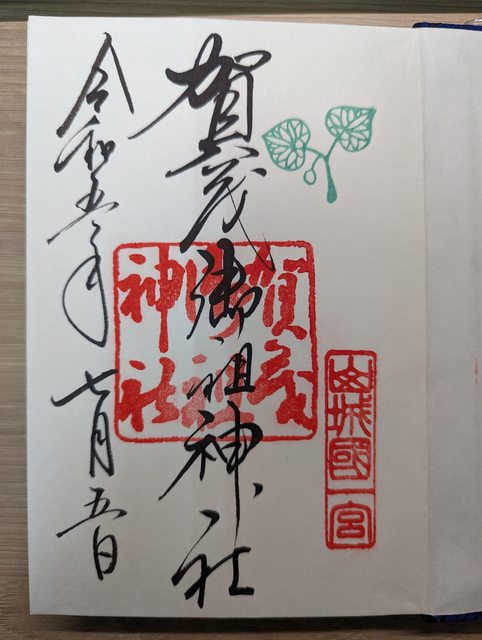 山城國一宮
賀茂御祖神社
賀茂御祖神社
令和五年七月五日